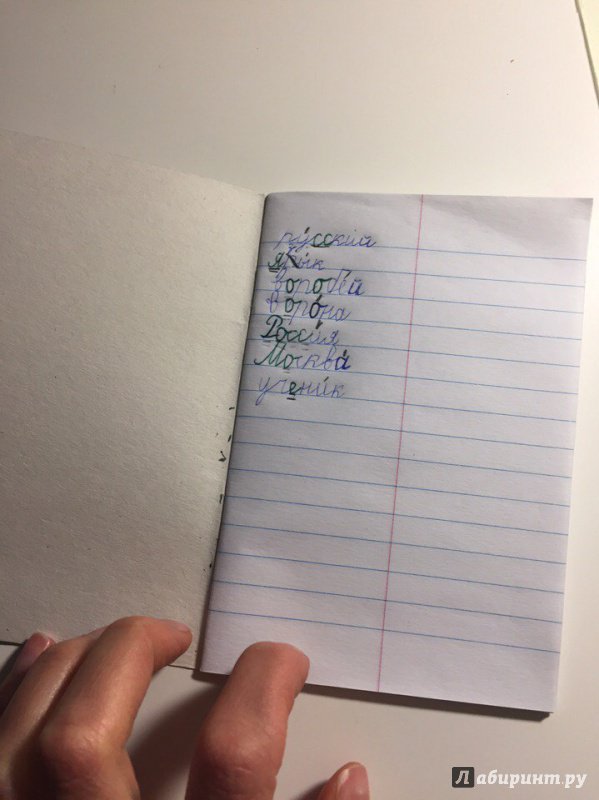 ру́сский
язы́к
воробе́й
воро́на
Росси́я
Москва́
учени́к
Лабиринт.ру